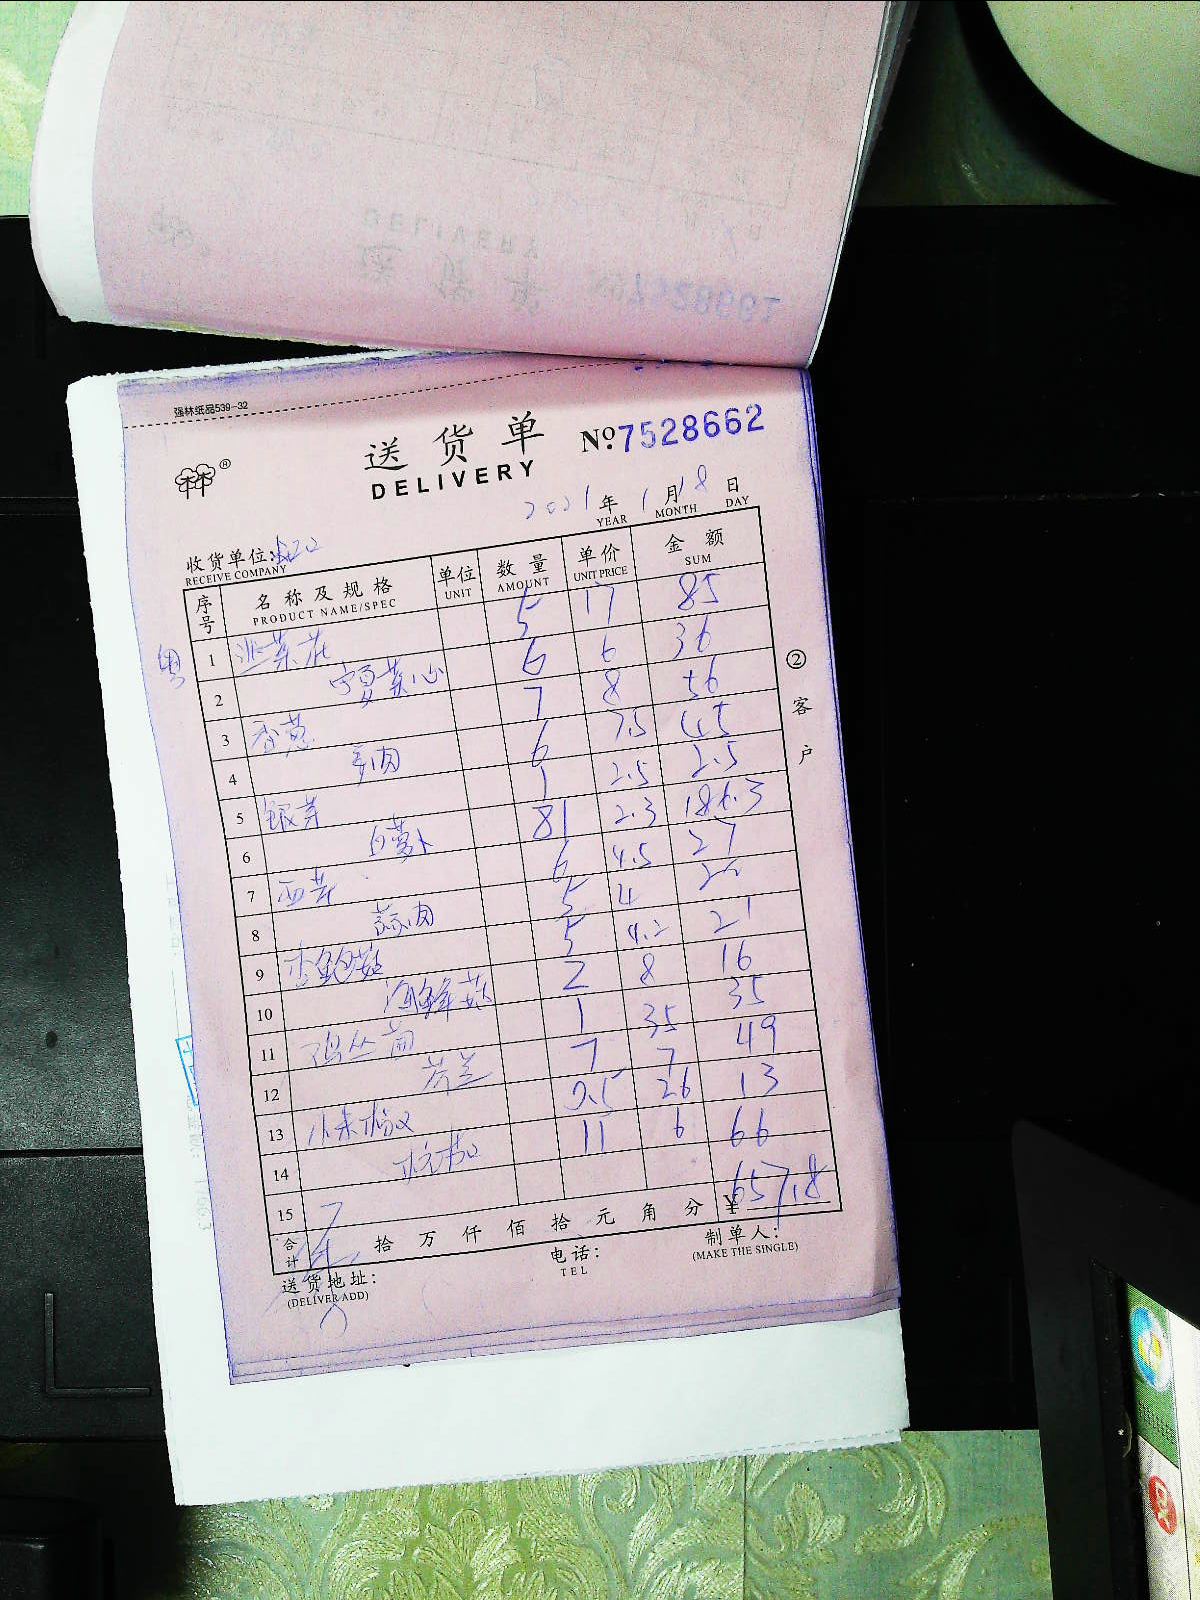 强林纸品539-32
林®
送货单
DELIVERY
№ 7528662
2021 年 1 月 18 日
YEAR MONTH DAY
收货单位:
RECEIVE COMPANY
序号 名称及规格 单位 数量 单价 金额
PRODUCT NAME/SPEC UNIT AMOUNT UNIT PRICE SUM
1 韭菜花 5 17 85
2 宁夏菜心 6 6 36
3 香葱 7 8 56
4 姜肉 6 7.5 45
5 银芽 1 2.5 2.5
6 白萝卜 81 2.3 186.3
7 西芹 6 4.5 27
8 蒜肉 5 4 20
9 杏鲍菇 5 4.2 21
10 海鲜菇 2 8 16
11 鸡丛菌 1 35 35
12 芥兰 7 7 49
13 小米椒 0.5 26 13
14 11 6 66
15
合计 拾 万 仟 佰 拾 元 角 分 ¥ 657.8
送货地址: 电话: 制单人:
(DELIVER ADD) TEL (MAKE THE SINGLE)
② 客户